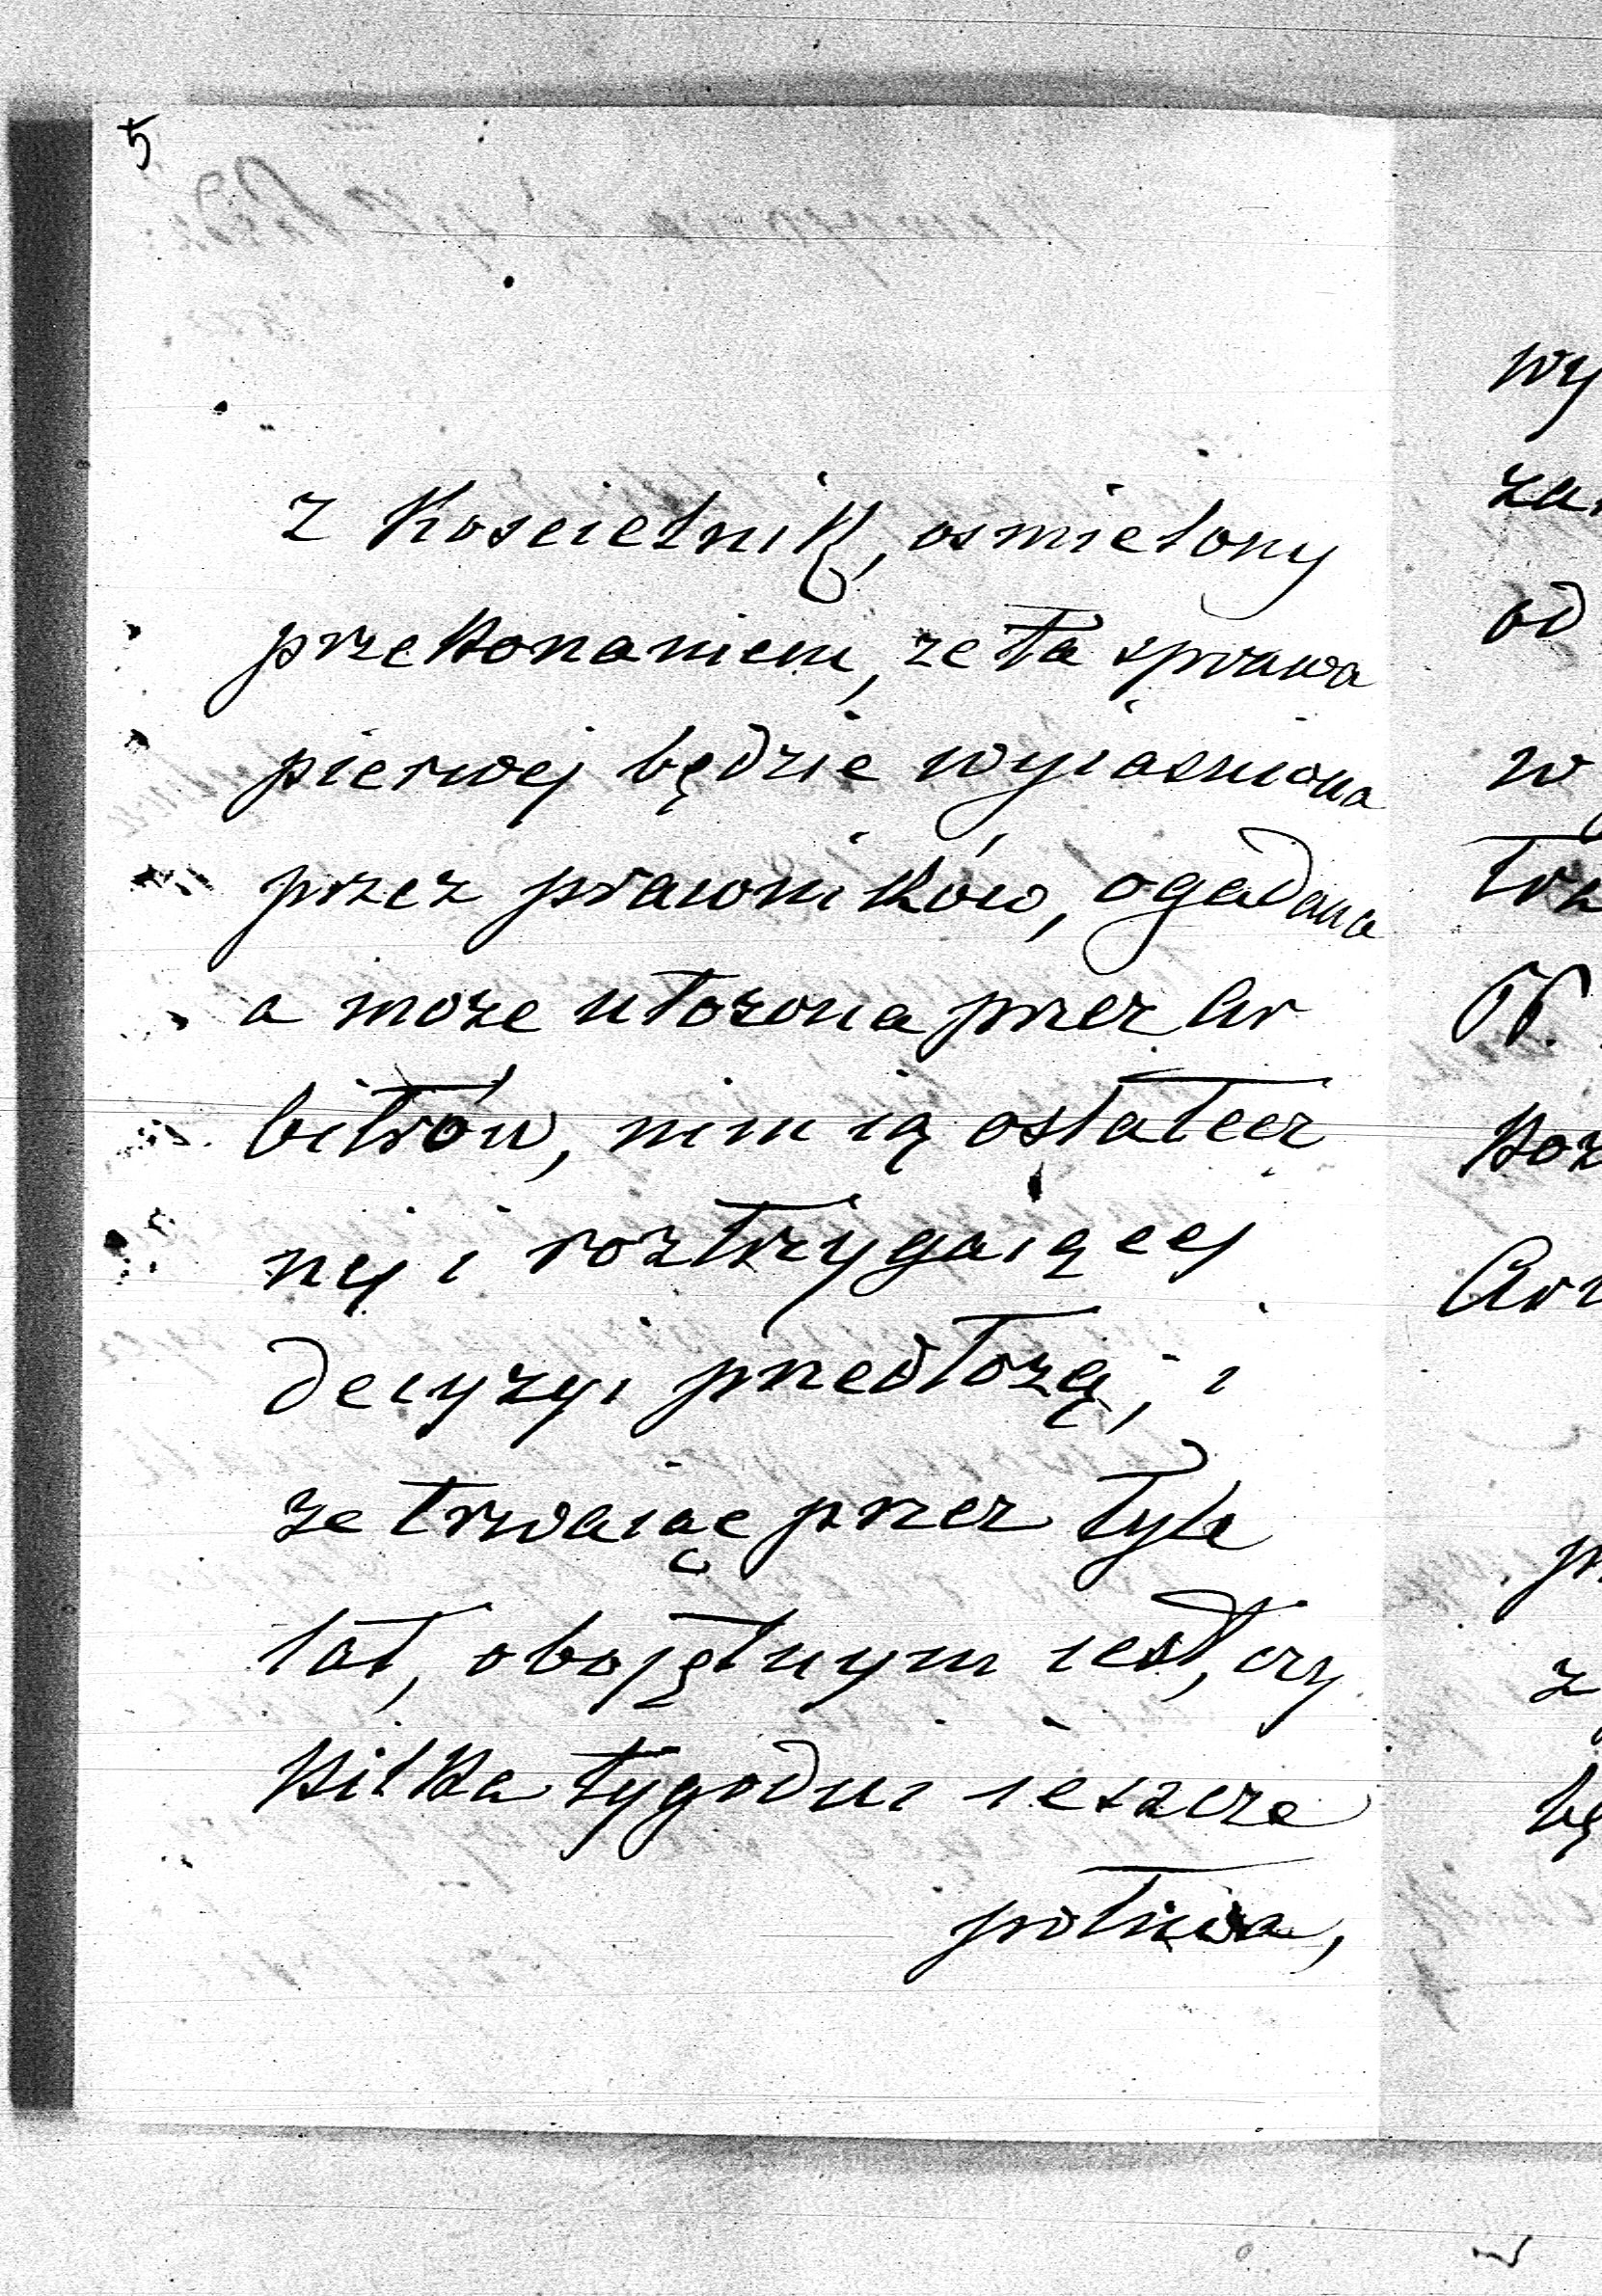 5
z Koscielnik, osmielony
przekonaniem, ze ta sprawa
pierwej będzie wyiasniona
przez prawników, ogadana
a moze ułozona przez Ar
bitrów, nim ią ostatecz
nej i roztrzygaiącej
decyzyi przedłozą; i
ze trwaiąc przez tyle
lat, obojętnym iest, czy
kilka tygodni ieszcze
potrwa,
wy
od
w
Koz
z
bę